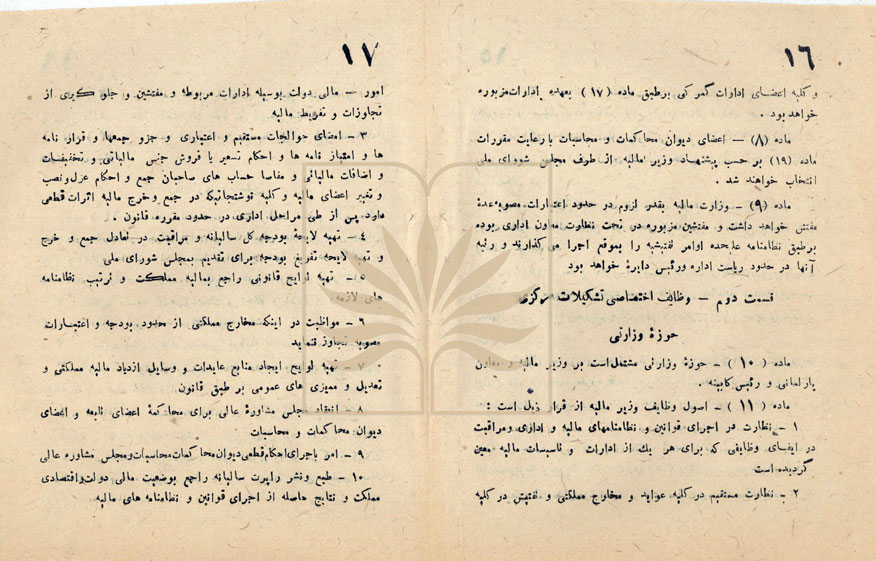 ۱۶
و کلیه اعضای ادارات گمرکی برطبق ماده (۱۷) بعهده إدارات مزبوره
خواهد بود .
ماده (۸) — اعضای دیوان محاکمات و محاسبات با رعایت مقررات
ماده (۱۹) بر حسب پیشنهاد وزیر مالیه از طرف مجلس شورای ملی
انتخاب خواهند شد .
ماده (۹) — وزارت مالیه بقدر لزوم در حدود اعتبارات مصوبه عدهٔ
مفتش خواهد داشت و مفتشین مزبوره در تحت نظارت معاون اداری بوده
برطبق نظامنامه علیحده اوامر تفتیشیه را بموقع اجرا می گذارند و رتبه
آنها در حدود ریاست اداره ورئیس دایرهٔ خواهد بود
قسمت دوم — وظایف اختصاصی تشکیلات مرکزی
حوزهٔ وزارتی
ماده (۱۰) — حوزهٔ وزارتی مشتمل است بر وزیر مالیه و معاون
پارلمانی و رئیس کابینه .
ماده (۱۱) — اصول وظایف وزیر مالیه از قرار ذیل است :
۱ — نظارت در اجرای قوانین و نظامنامهای مالیه و اداری ومراقبت
در ایفای وظایفی که برای هر یك از ادارات و تاسیسات مالیه معین
گردیده است
۲ — نظارت مستقیم در کلیه عواید و مخارج مملکتی و تفتیش در کلیه
۱۷
امور — مالی دولت بوسیله ادارات مربوطه و مفتشین و جلوگیری از
تجاوزات و تفریط مالیه
۳ — امضای حوالجات مستقیم و اعتباری و جزو جمعها و قرار نامه
ها و امتیاز نامه ها و احکام تسعیر یا فروش جنس مالیاتی و تخفیفات
و اضافات مالیاتی و مفاصا حساب های صاحبان جمع و احکام عزل و نصب
و تغییر اعضای مالیه و کلیه نوشتجاتیکه در جمع وخرج مالیه اثرات قطعی
دارد پس از طی مراحل اداری در حدود مقرره قانون .
۴ — تهیه لایحهٔ بودجه کل سالیانه و مراقبت در تعادل جمع و خرج
و تهیه لایحه تفریغ بودجه برای تقدیم بمجلس شورای ملی
۱۵ — تهیه لوایح قانونی راجع بمالیه مملکت و ترتیب نظامنامه
های لازمه
۶ — مواظبت در اینکه مخارج مملکتی از حدود بودجه و اعتبارات
مصوبه تجاوز ننماید
۷ — تهیه لوایح ایجاد منابع عایدات و وسایل ازدیاد مالیه مملکتی و
تعدیل و ممیزی های عمومی بر طبق قانون
۸ — انعقاد مجلس مشاورهٔ عالی برای محاکمهٔ اعضای تابعه و اعضای
دیوان محاکمات و محاسبات
۹ — امر باجرای احکام قطعی دیوان محاکمات محاسبات و مجلس مشاوره عالی
۱۰ — طبع و نشر راپرت سالیانه راجع بوضعیت مالی دولت واقتصادی
مملکت و نتایج حاصله از اجرای قوانین و نظامنامه های مالیه